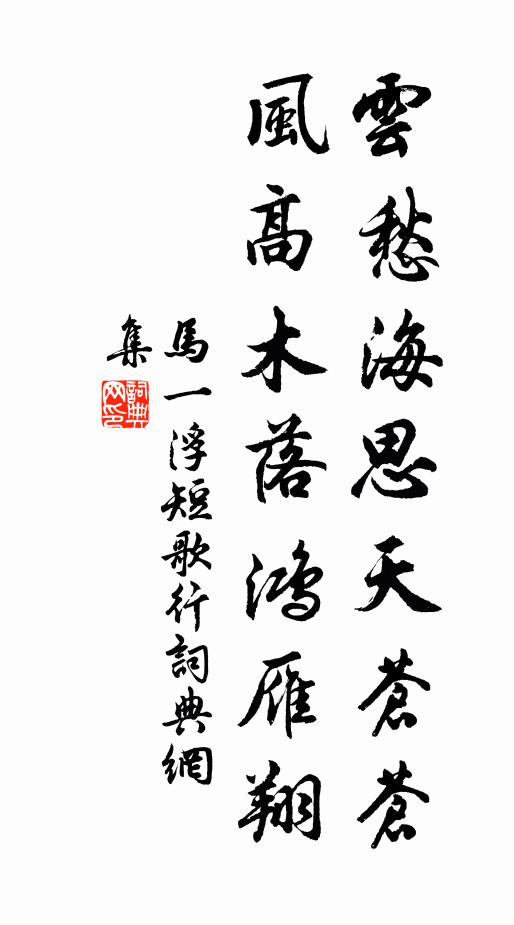 雲愁海思天蒼蒼
風高木落鴻雁翔
馬一浮短歌行詞典網
集
詞典
网印